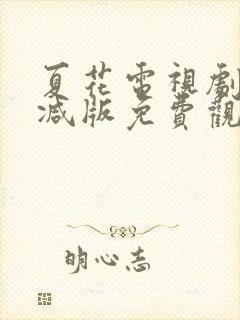 夏花電視劇
減版免費觀
明心志